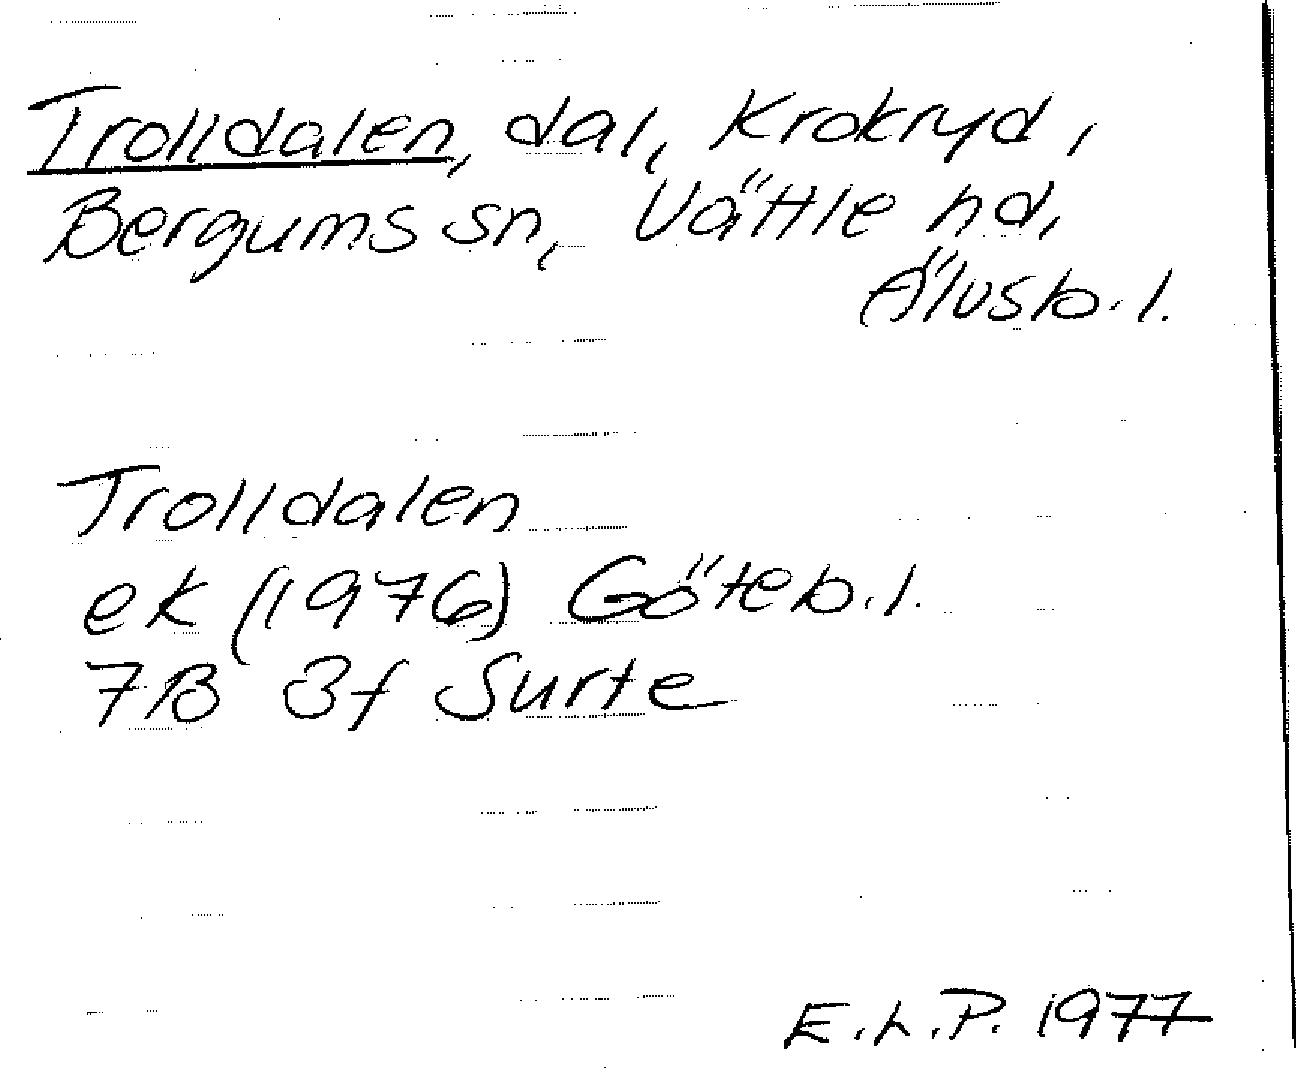 Trolldalen, dal, Krokryd,
Bergums sn, Vättle hd,
Älvsb. l.
Trolldalen
ek (1976) Göteb. l.
7B 3f Surte
E.L.P. 1977